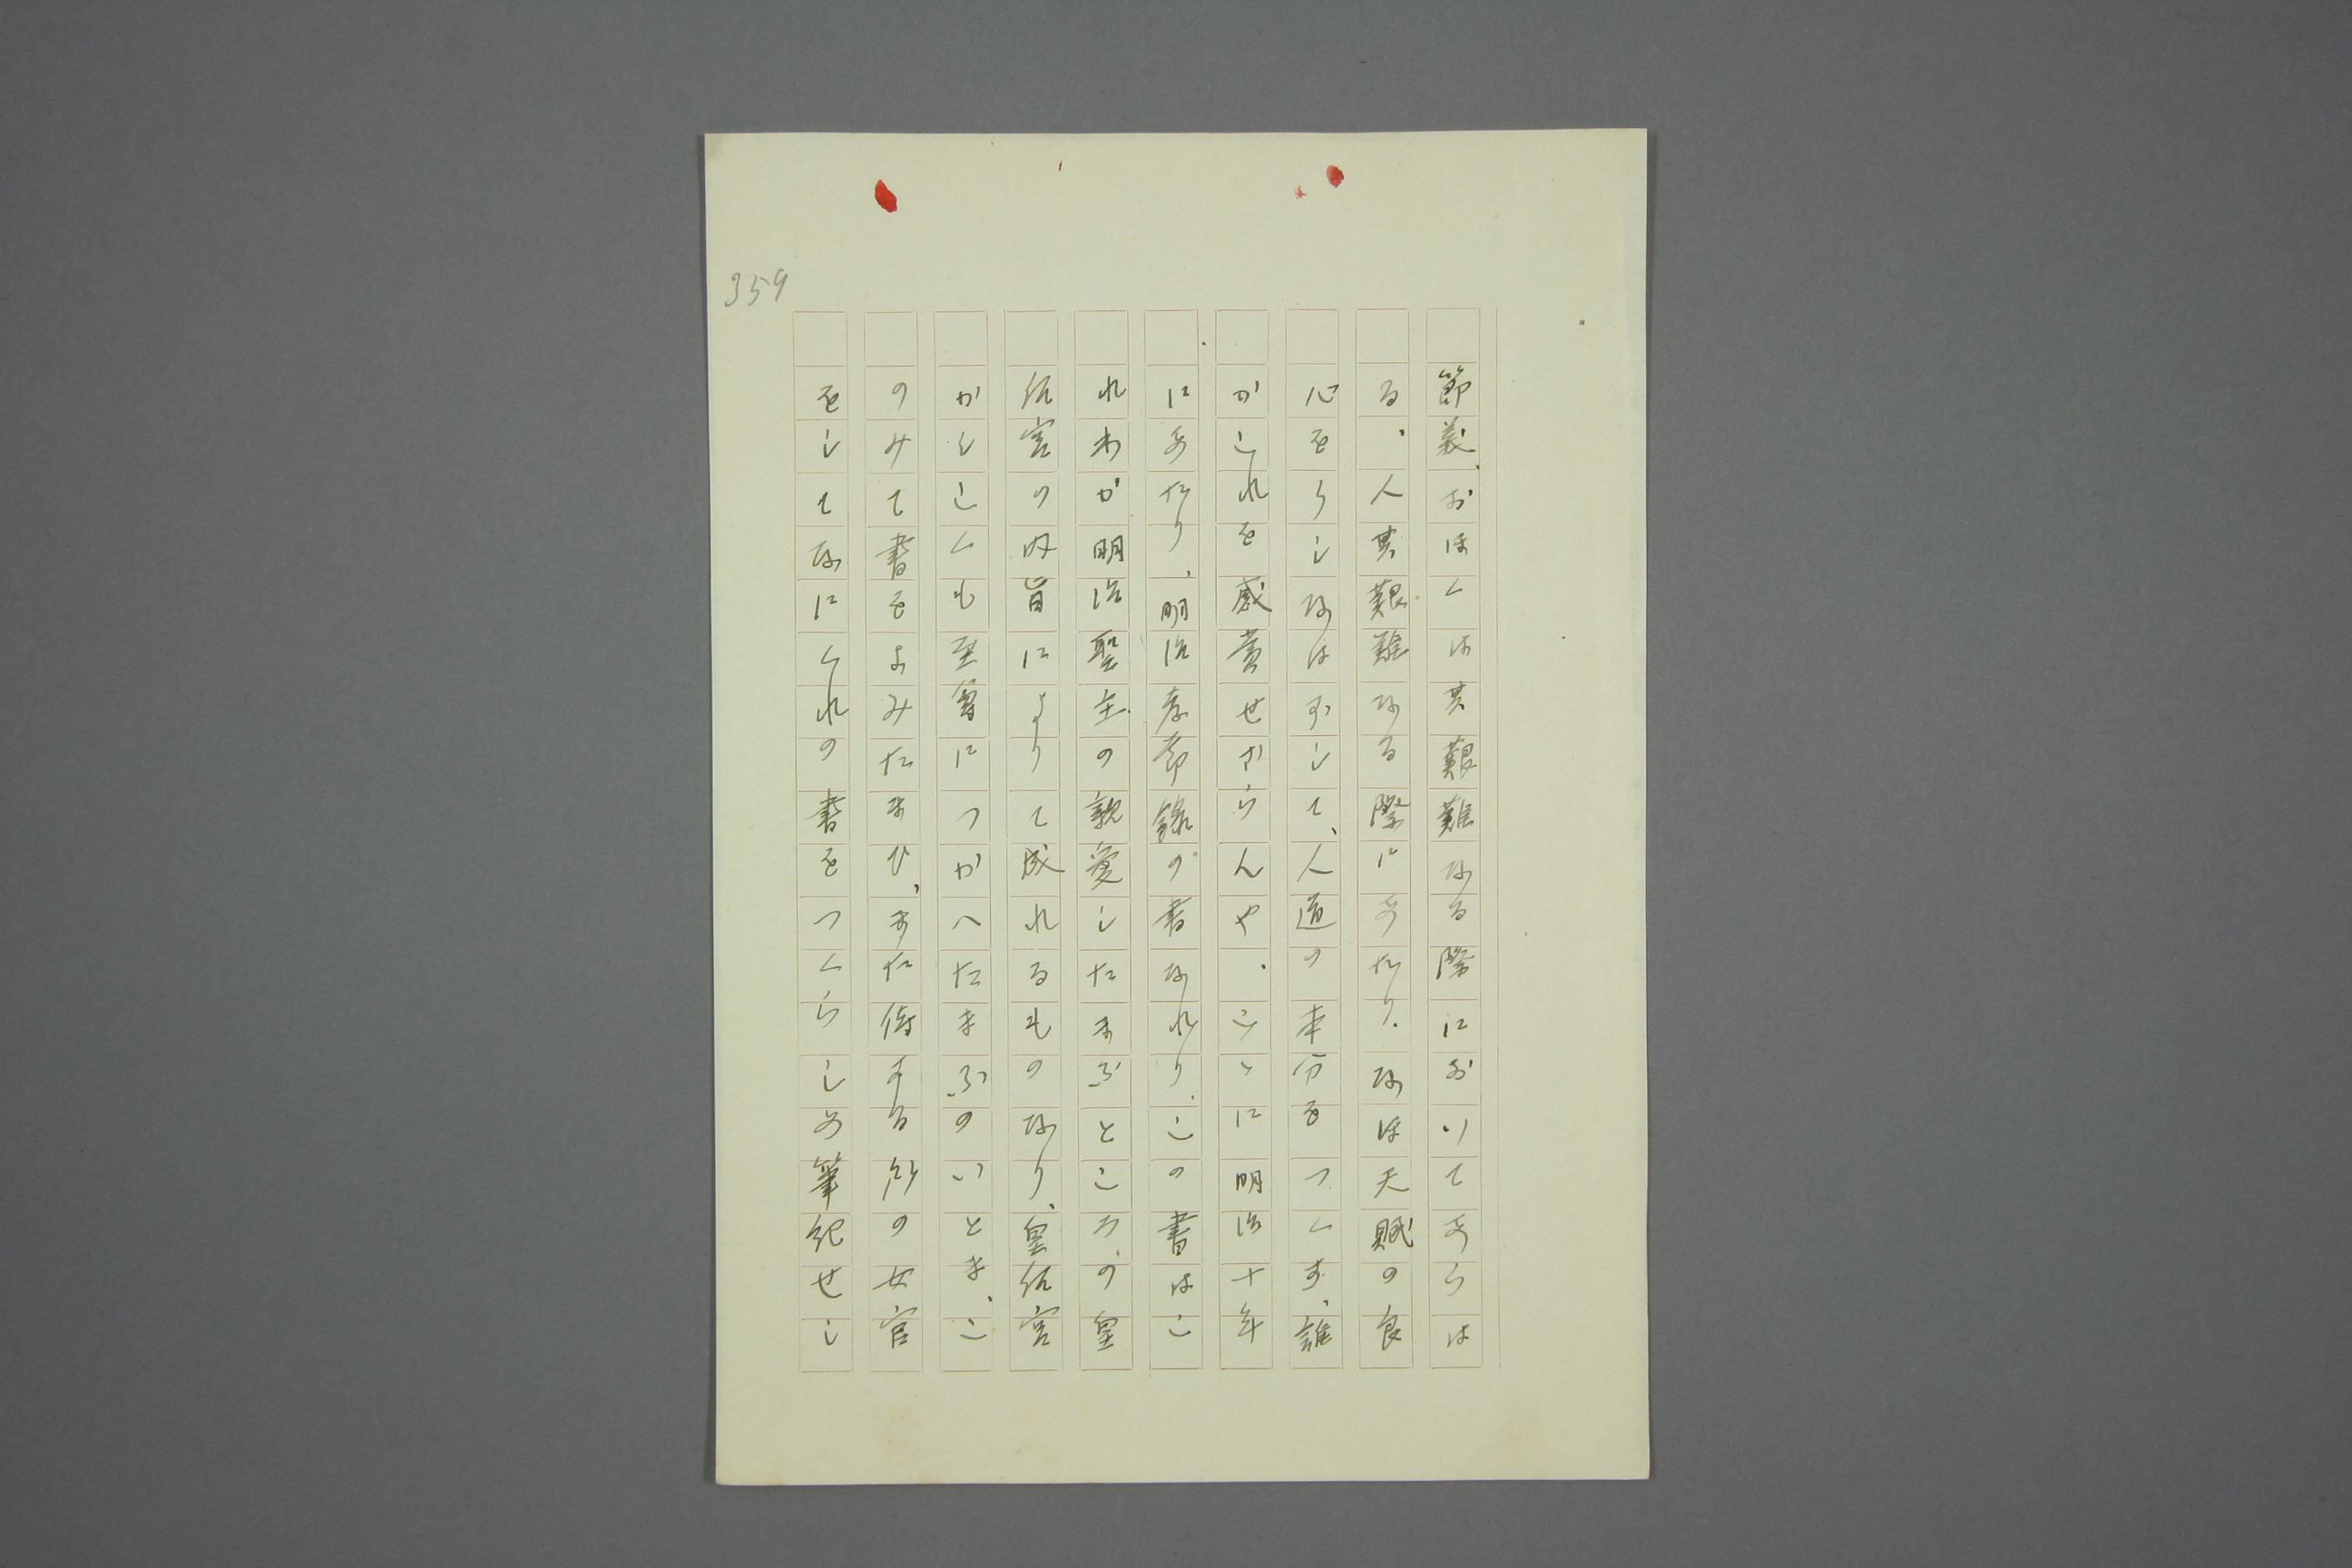 359
節義.おほくは其艱難なる際においてあらは
る.人其艱難なる際にあたり.なほ天賦の良
心をうしなはずして、人道の本分をつくす、誰
かこれを感賞せざらんや.こゝに明治十年
にあたり、明治孝節録の書なれり.この書はこ
れわが明治聖主の親愛したまふところの皇
后宮の内旨によりて成れるものなり、皇后宮
かしこくも至尊につかへたまふのいとま、こ
のみて書をよみたまひ、また侍する所の女官
をしてなにくれの書をつくらしめ筆紀せし